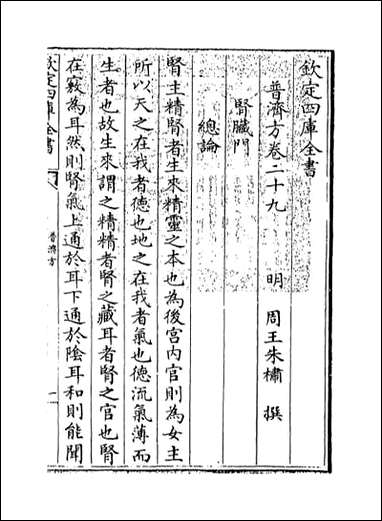 欽定四庫全書
普濟方卷二十九
明 周王朱橚 撰
腎臟門
總論
腎主精腎者生來精靈之本也為後宮内官則為女主
所以天之在我者德也地之在我者氣也德流氣薄而
生者也故生來謂之精精者腎之藏耳者腎之官也腎
在竅為耳然則腎氣上通於耳下通於陰耳和則能聞
欽定四庫全書
普濟方